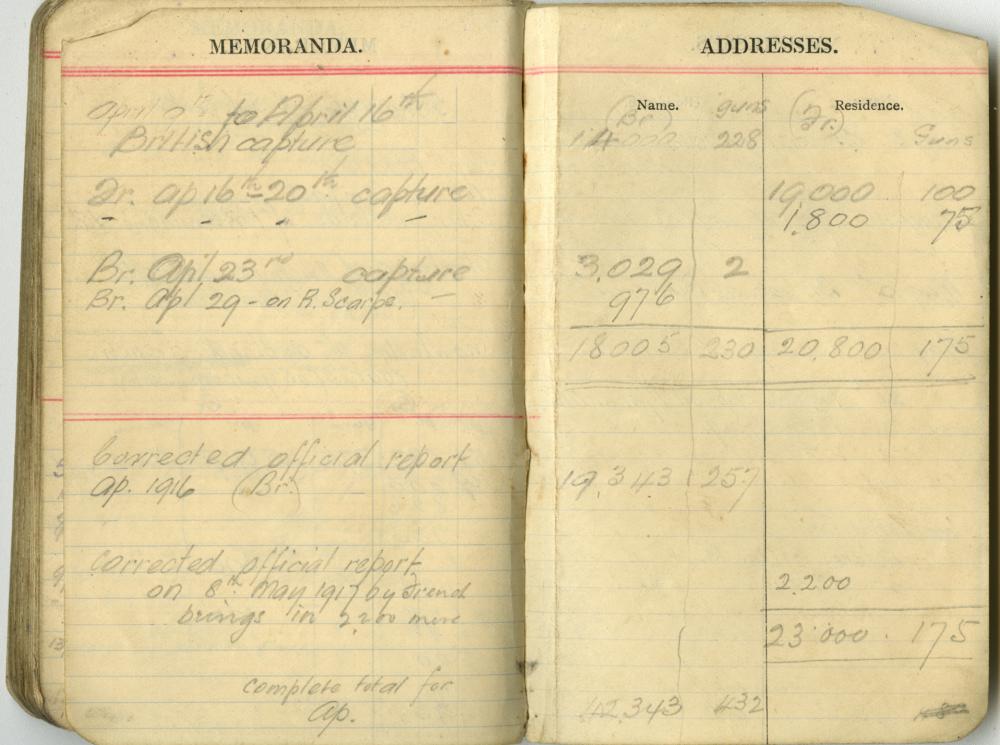 MEMORANDA.
April to April 16th
British capture
Fr. Ap 16th - 20th capture
Br. Apl 23rd capture
Br. Apl 29 - on R. Scarpe.
Corrected official report
Ap. 1916 (Br.)
Corrected official report
on 8th May 1917 by French
brings in 2200 more
complete total for
Ap.
ADDRESSES.
Name. Residence.
(Br.) guns (Fr.)
14000 228 Guns
19,000 100
1,800 75
3,029 2
976
18005 230 20,800 175
19,343 257
2,200
23,000 175
42,343 432